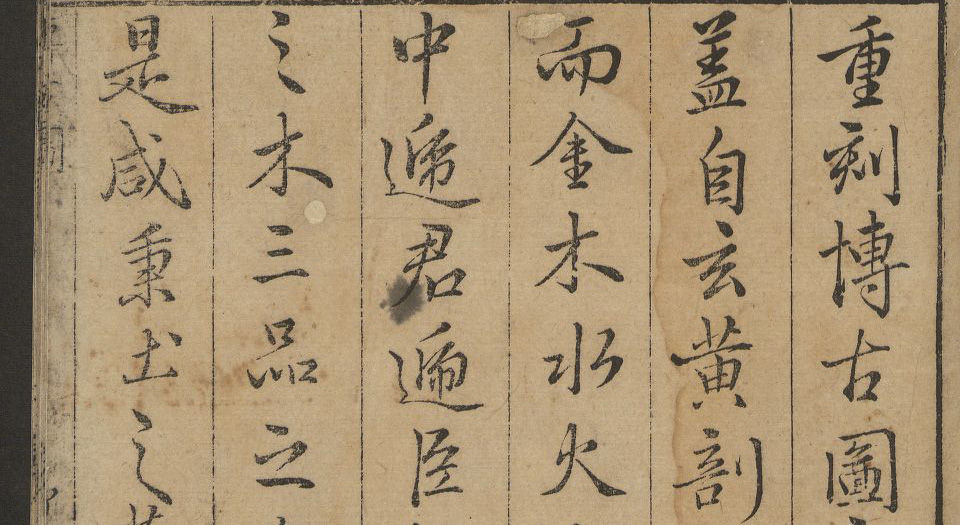 重刻博古圖
盖自玄黃剖
而金木水火
中遞君遞臣
之木三品之
是咸秉土之